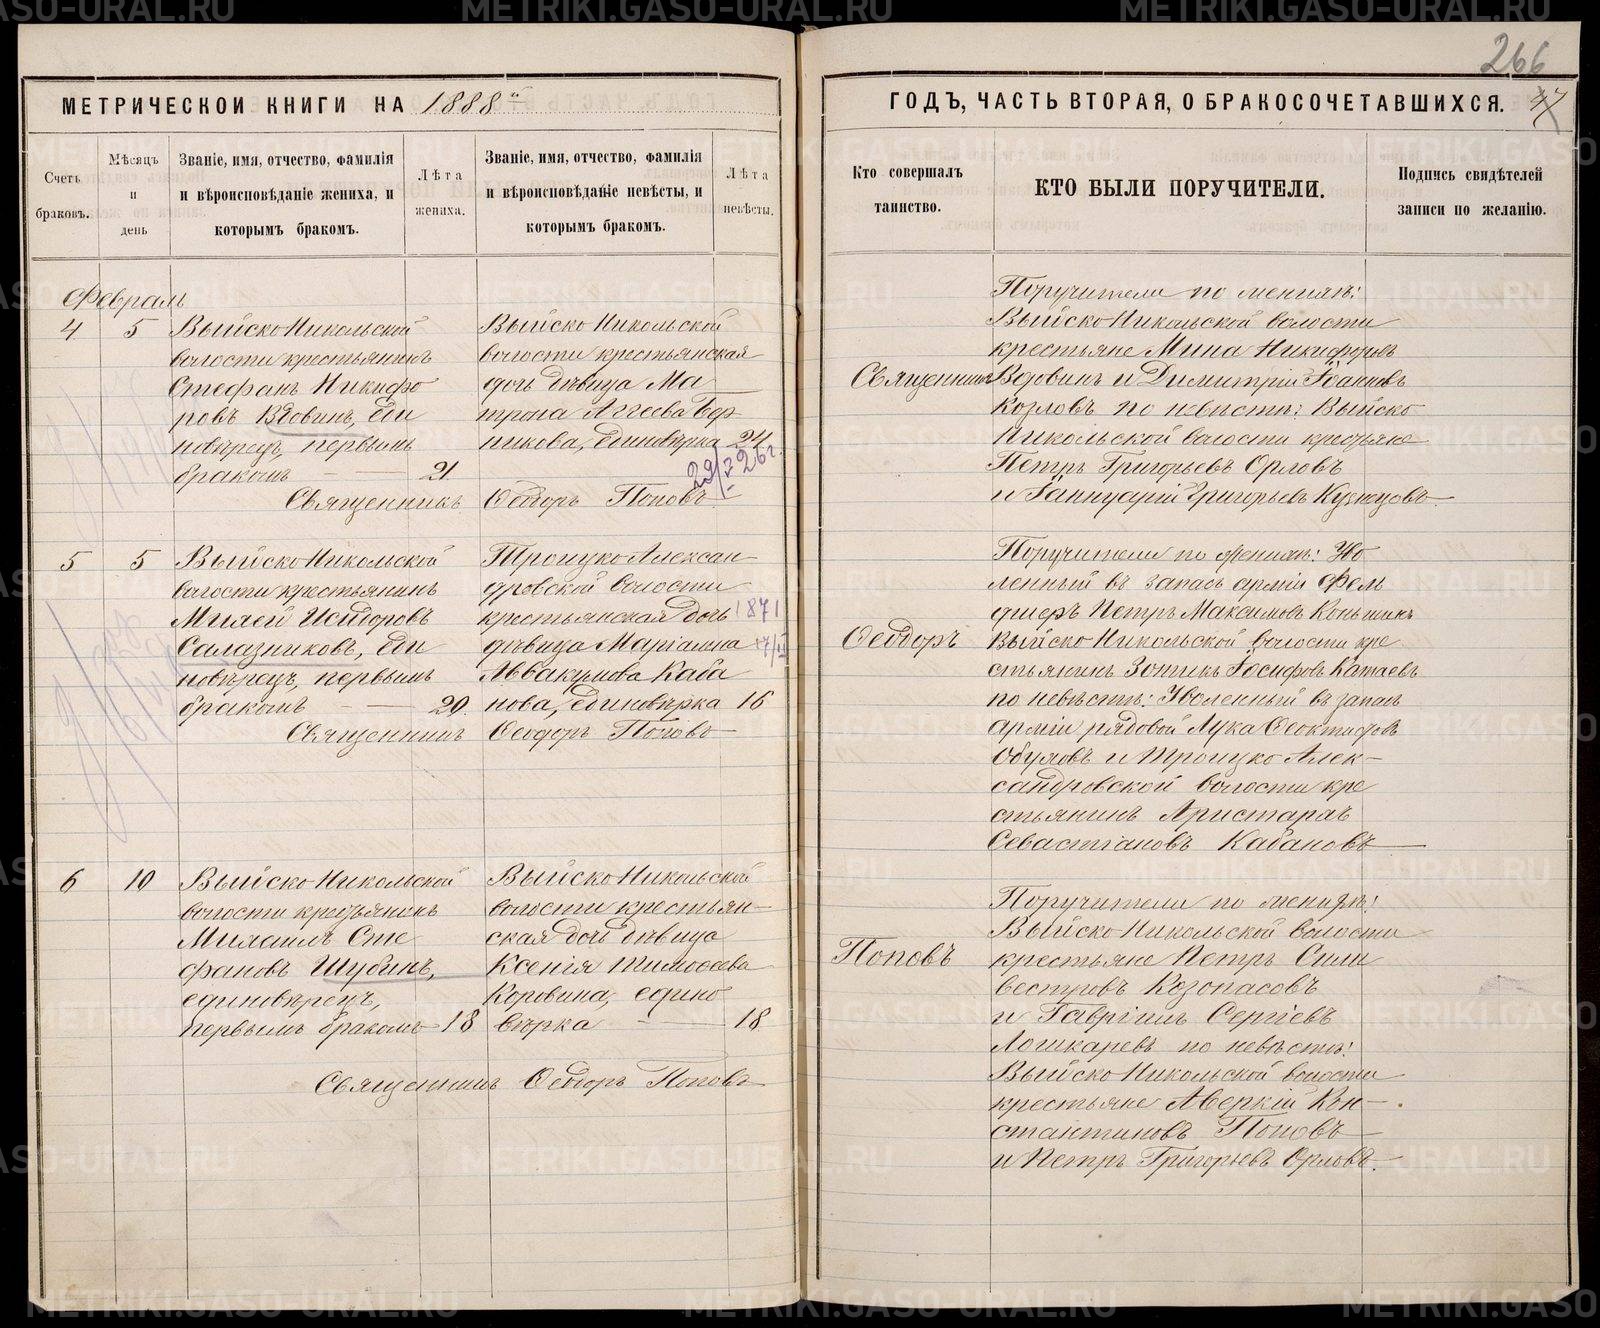 266
МЕТРИЧЕСКОЙ КНИГИ НА 1888й
ГОДЪ, ЧАСТЬ ВТОРАЯ, О БРАКОСОЧЕТАВШИХСЯ. 47
Счетъ
браковъ.
Мѣсяцъ
и
день
Званіе, имя, отчество, фамилія
и вѣроисповѣданіе жениха, и
которымъ бракомъ.
Лѣта
жениха.
Званіе, имя, отчество, фамилія
и вѣроисповѣданіе невѣсты, и
которымъ бракомъ.
Лѣта
невѣсты.
Кто совершалъ
таинство.
КТО БЫЛИ ПОРУЧИТЕЛИ.
Подпись свидѣтелей
записи по желанію.
Февраль
4 5
Выйско Никольской
волости крестьянинъ
Стефанъ Никифо
ровъ Вдовинъ, еди
новѣрецъ, первымъ
бракомъ 21
Выйско Никольской
волости крестьянская
дочь дѣвица Ма
трона Аггеева
единовѣрка 24
Священникъ Ѳеодоръ Поповъ
5 5
Выйско Никольской
волости крестьянинъ
Исидоровъ
Салазниковъ, еди
новѣрецъ, первымъ
бракомъ 20.
Троицко Алексан
дровской волости
крестьянская дочь 1871
дѣвица Маріамна
Аввакумова Каба
нова, единовѣрка 16
Священникъ Ѳеодоръ Поповъ
6 10
Выйско Никольской
волости крестьянинъ
Михаилъ Сте
фановъ Шубинъ,
единовѣрецъ,
первымъ бракомъ 18
Выйско Никольской
волости крестьян
ская дочь дѣвица
Ксенія Тимоѳеева
Коровина, едино
вѣрка 18
Священникъ Ѳеодоръ Поповъ
Священникъ
Ѳеодоръ
Поповъ
Поручители по женихѣ:
Выйско Никольской волости
крестьяне Мина Никифоровъ
Вдовинъ и Димитрій Іоанновъ
Козловъ по невѣстѣ: Выйско
Никольской волости крестьяне
Петръ Григорьевъ Орловъ
и Іаннуарій Григорьевъ Кузнецовъ.
Поручители по женихѣ: Уво
ленный въ запасъ арміи Фель
дшеръ Петръ Максимовъ
Выйско Никольской волости кре
стьянинъ Зотикъ Іосифовъ Катаевъ
по невѣстѣ: Уволенный въ запасъ
арміи рядовой Лука Ѳеоктистовъ
Обуховъ и Троицко Алек
сандровской волости кре
стьянинъ Аристархъ
Севастіановъ Кабановъ
Поручители по женихѣ:
Выйско Никольской волости
крестьяне Петръ Сили
вестровъ Козопасовъ
и Гавріилъ Сергіевъ
Лошкаревъ по невѣстѣ:
Выйско Никольской волости
крестьяне Аверкій Кон
стантиновъ Поповъ
и Петръ Григорьевъ Орловъ.
METRIKI.GASO-URAL.RU